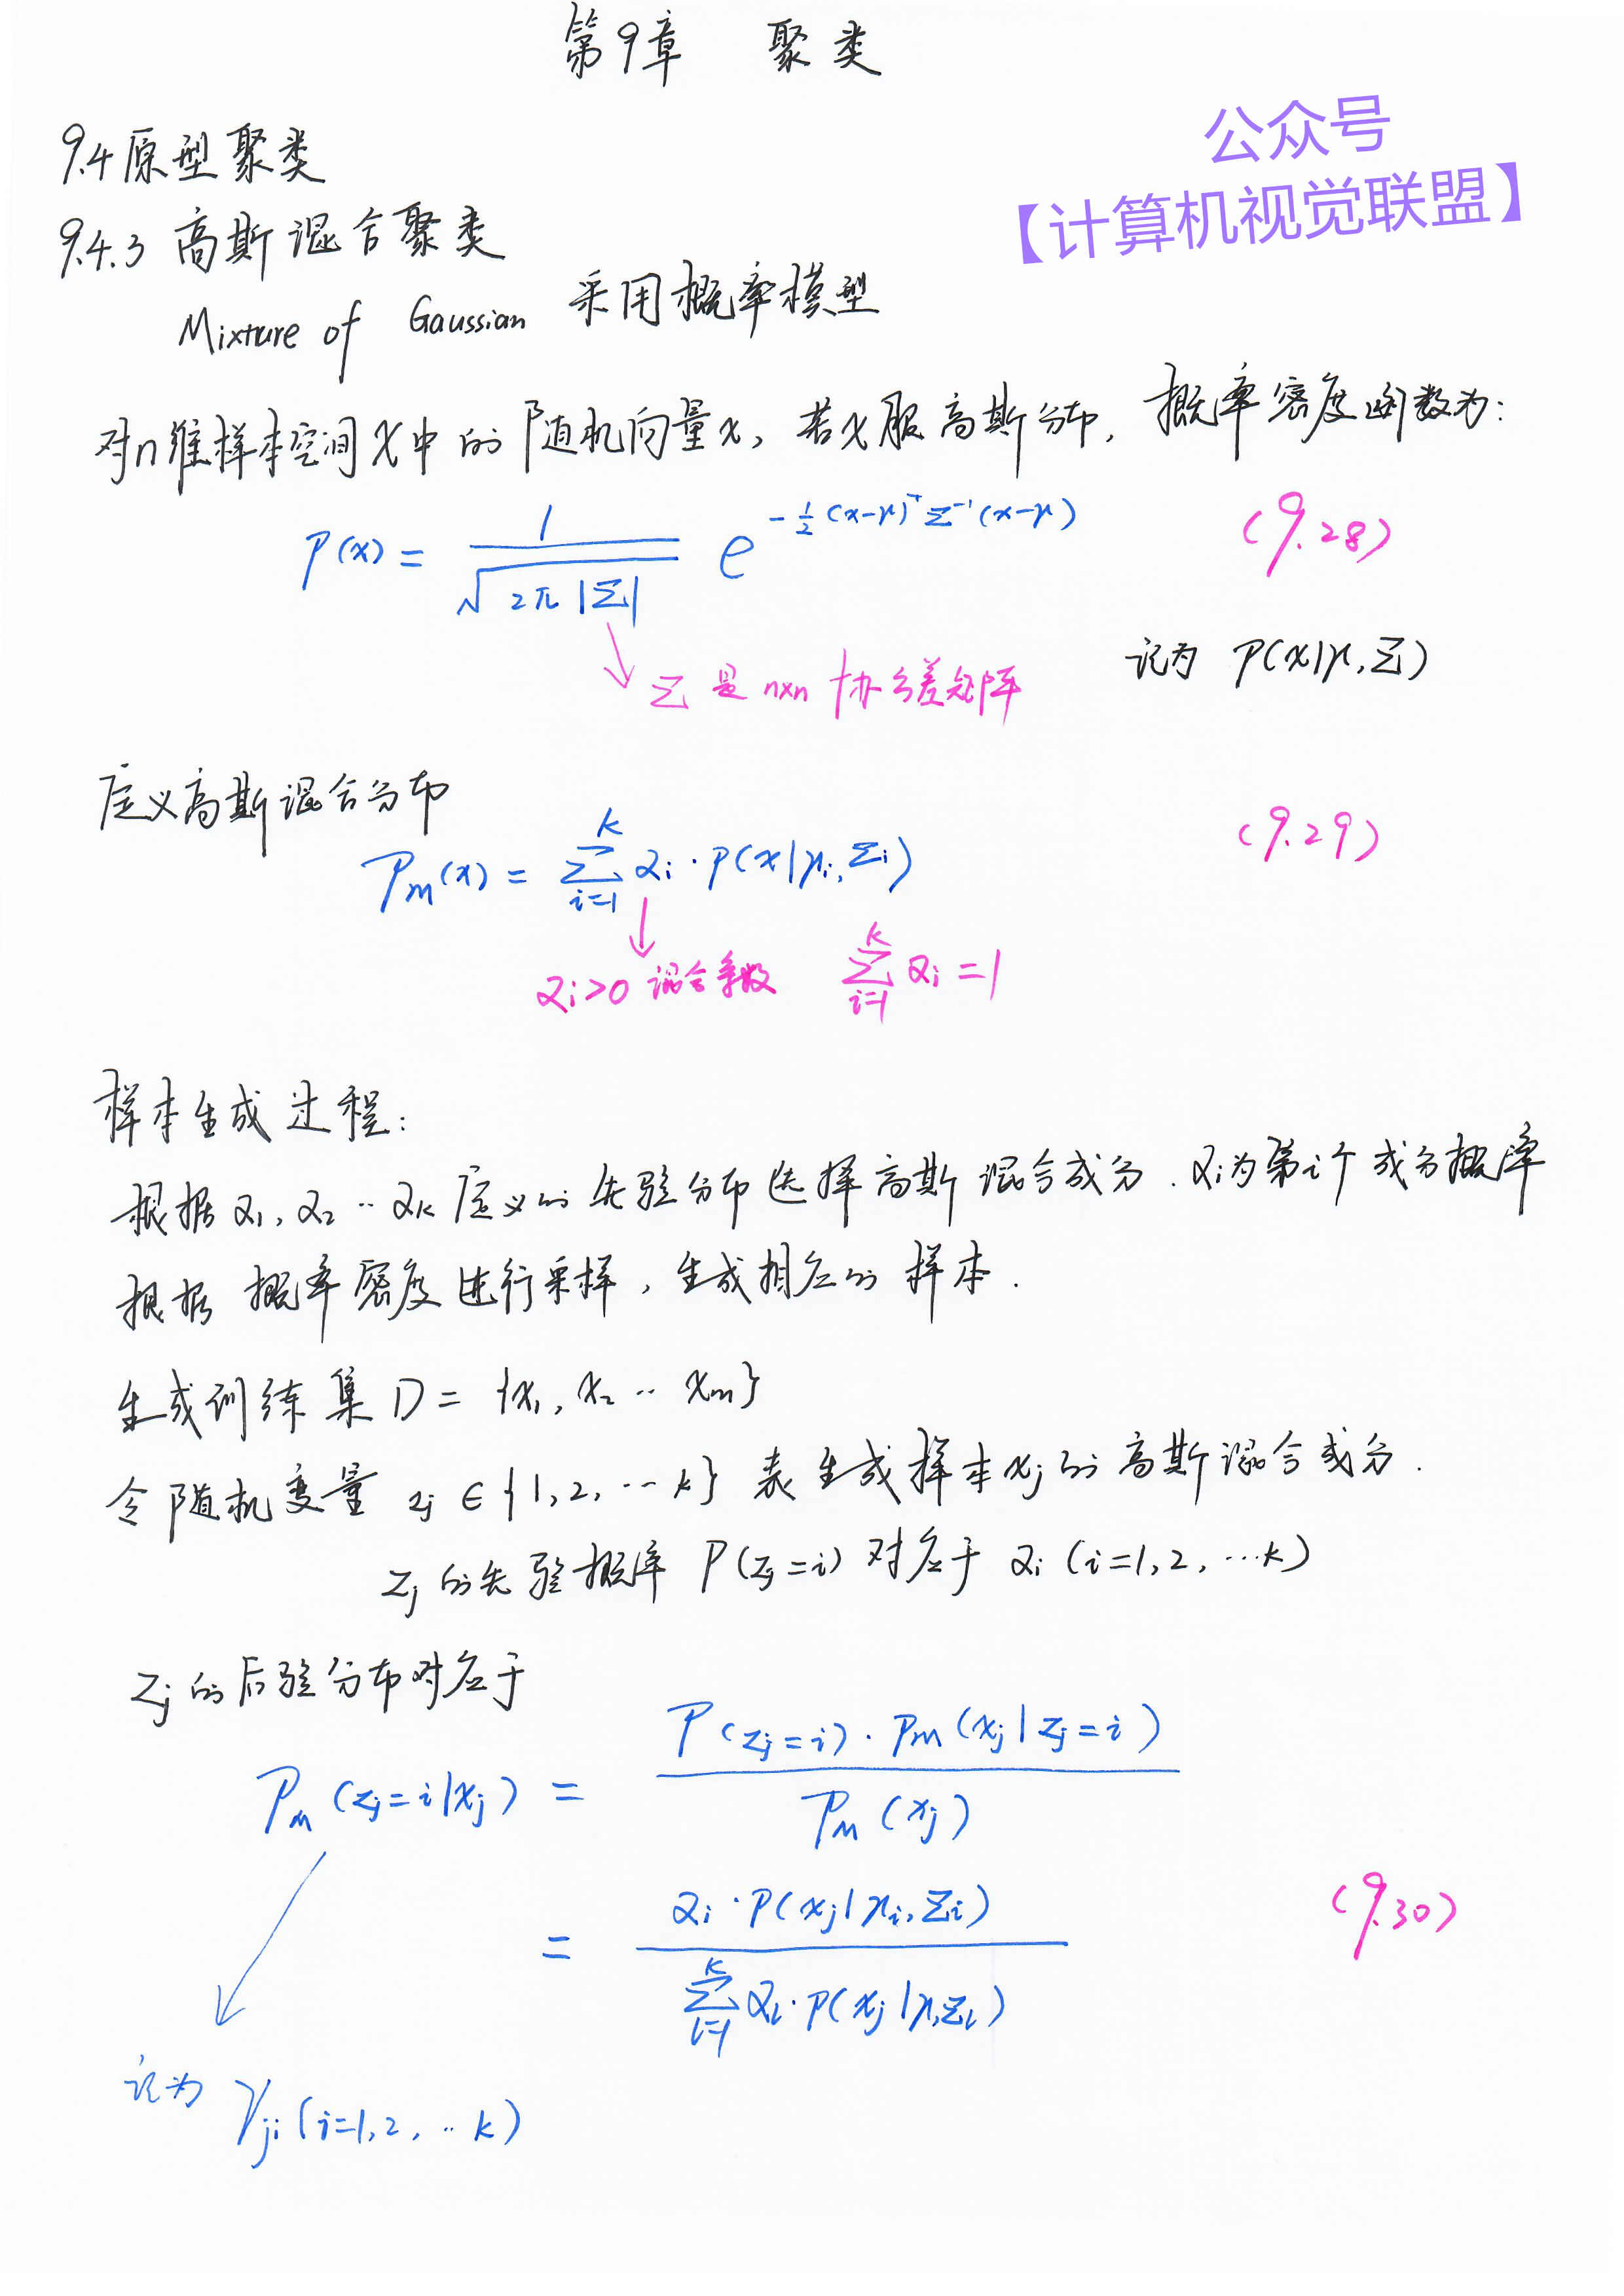 第9章 聚类
公众号
【计算机视觉联盟】
9.4 原型聚类
9.4.3 高斯混合聚类
Mixture of Gaussian 采用概率模型
对n维样本空间X中的随机向量x, 若x服高斯分布, 概率密度函数为:
p(x) = 1 / √(2π|Σ|) e^(-1/2 (x-μ)^T Σ^-1 (x-μ)) (9.28)
Σ 是 n×n 协方差矩阵
记为 P(x|μ,Σ)
定义高斯混合分布
Pm(x) = Σ_{i=1}^{k} αi · P(x|μi,Σi) (9.29)
αi>0 混合系数 Σ_{i=1}^{k} αi = 1
样本生成过程:
根据α1, α2 ·· αk 定义的先验分布选择高斯混合成分. αi为第i个成分概率
根据 概率密度进行采样, 生成相应的样本.
生成训练集 D = {x1, x2 ·· xm}
令随机变量 zj ∈ {1, 2, ··· k} 表生成样本xj的高斯混合成分.
zj 的先验概率 P(zj=i) 对应于 αi (i=1, 2, ···k)
zj 的后验分布对应于
Pm(zj=i|xj) = P(zj=i) · Pm(xj|zj=i) / Pm(xj)
= αi · P(xj|μi,Σi) / Σ_{l=1}^{k} αl · P(xj|μ,Σl) (9.30)
记为 γji (i=1,2, ·· k)